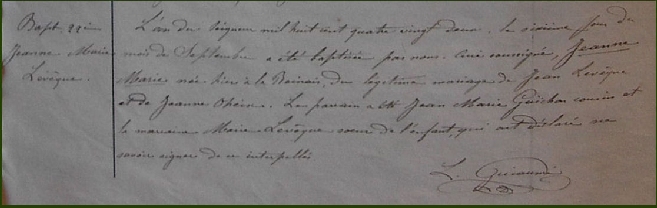 Bapt. 22ème
Jeanne Marie
Levêque.
L'an du Seigneur mil huit cent quatre vingt douze le sixième jour du
mois de Septembre a été baptisée par nous curé soussigné, Jeanne
Marie née hier à la du legitime mariage de Jean Levêque
et de Jeanne Le parrain a été Jean Marie cousin et
la marraine Marie Levêque soeur de l'enfant, qui ont déclaré ne
savoir signer de ce interpellés